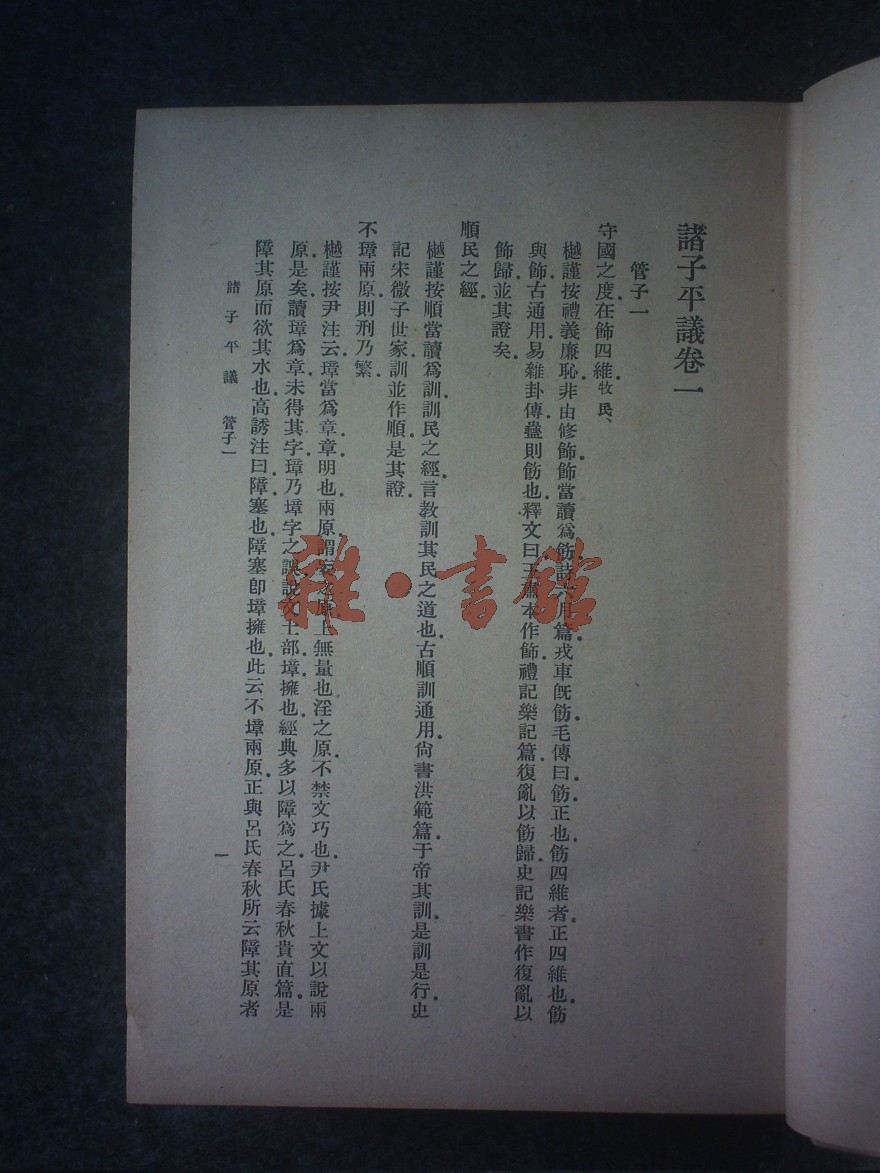 諸子平議卷一
管子一
守國之度。在飾四維。牧民、
樾謹按禮義廉恥。非由修飾。飾當讀爲飭。詩六月篇。戎車旣飭。毛傳曰。飭。正也。飭四維者。正四維也。飭
與飾古通用。易雜卦傳。蠱則飭也。釋文曰。王肅本作飾。禮記樂記篇。復亂以飭歸。史記樂書作復亂以
飾歸。並其證矣。
順民之經。
樾謹按順當讀爲訓。訓民之經。言敎訓其民之道也。古順訓通用。尙書洪範篇。于帝其訓。是訓是行。史
記宋微子世家。訓並作順。是其證。
不璋兩原。則刑乃繁。
樾謹按尹注云。璋當爲章。章。明也。兩原。謂妄之原。上無量也。淫之原。不禁文巧也。尹氏據上文以說兩
原。是矣。讀璋爲章。未得其字。璋乃墇字之誤。說文土部。墇。擁也。經典多以障爲之。呂氏春秋貴直篇。是
障其原而欲其水也。高誘注曰。障。塞也。障塞卽墇擁也。此云不墇兩原。正與呂氏春秋所云障其原者
諸子平議 管子一
一
雜·書館